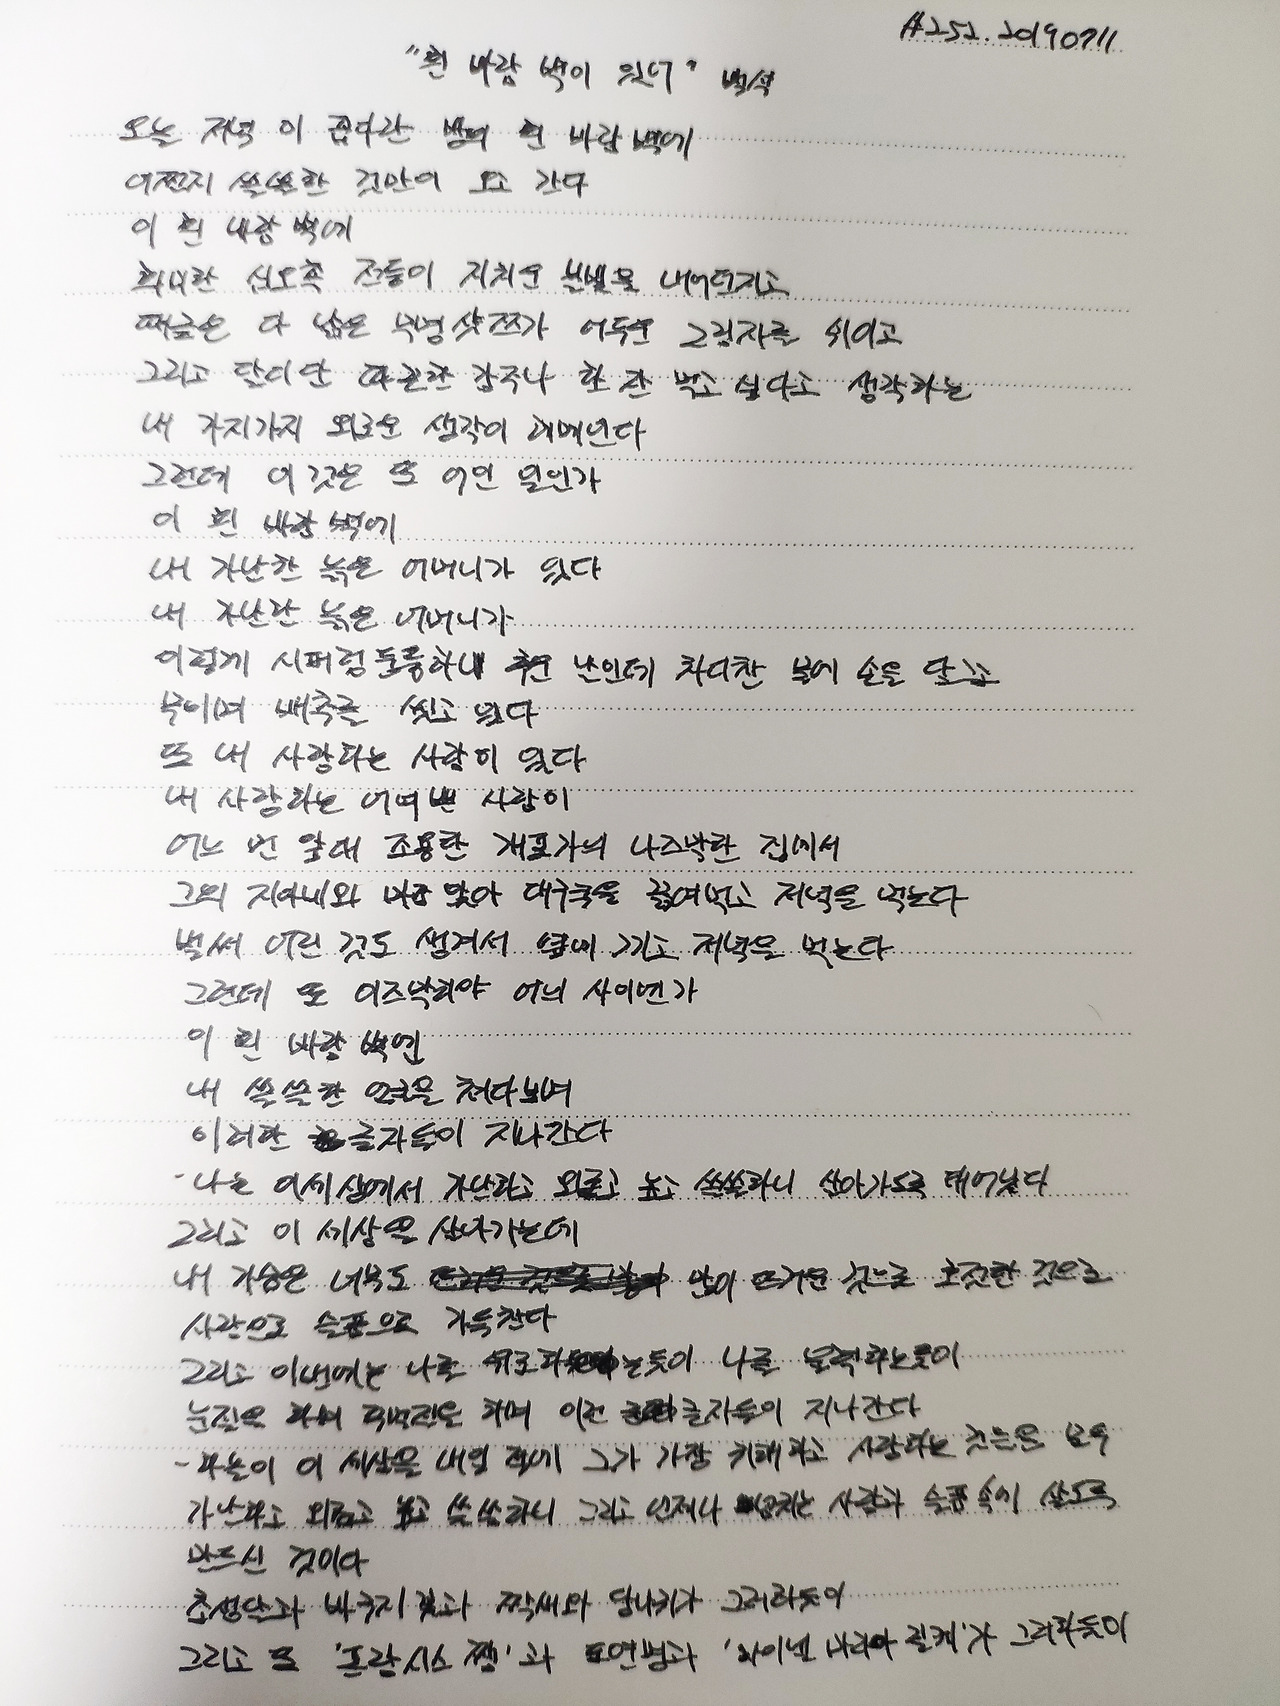 #252. 20190711
"흰 바람 벽이 있어" 백석
오늘 저녁 이 좁다란 방의 흰 바람 벽에
어쩐지 쓸쓸한 것만이 오고 간다
이 흰 바람 벽에
희미한 십오촉 전등이 지치운 불빛을 내어던지고
때글은 다 낡은 무명 샷쯔가 어두운 그림자를 쉬이고
그리고 또 달디단 따끈한 감주나 한 잔 먹고 싶다고 생각하는
내 가지가지 외로운 생각이 헤매인다
그런데 이것은 또 어인 일인가
이 흰 바람 벽에
내 가난한 늙은 어머니가 있다
내 가난한 늙은 어머니가
이렇게 시퍼럼둥둥하니 추운 날인데 차디찬 물에 손을 담그고
무이며 배추를 씻고 있다
또 내 사랑하는 사람이 있다
내 사랑하는 어여쁜 사람이
어느 먼 앞대 조용한 개포가의 나즈막한 집에서
그의 지아비와 마주 앉아 대구국을 끓여먹고 저녁을 먹는다
벌써 어린 것도 생겨서 옆에 끼고 저녁을 먹는다
그런데 또 이즈막하야 어늬 사이엔가
이 흰 바람 벽엔
내 쓸쓸한 얼굴을 쳐다보며
이러한 글자들이 지나간다
-나는 이 세상에서 가난하고 외롭고 높고 쓸쓸하니 살아가도록 태어났다
그리고 이 세상을 살아가는데
내 가슴은 너무도 많이 뜨거운 것으로 호젓한 것으로
사랑으로 슬픔으로 가득찬다
그리고 이번에는 나를 위로하는듯이 나를 울력하는듯이
눈질을 하며 주먹질을 하며 이런 글자들이 지나간다
-하늘이 이 세상을 내일 적에 그가 가장 귀해하고 사랑하는 것들은 모두
가난하고 외롭고 높고 쓸쓸하니 그리고 언제나 넘치는 사랑과 슬픔 속에 살도록
만드신 것이다
초생달과 바구지꽃과 짝새와 당나귀가 그러하듯이
그리고 또 '프랑시스 쨈'과 도연명과 '라이넬 마리아 릴케'가 그러하듯이